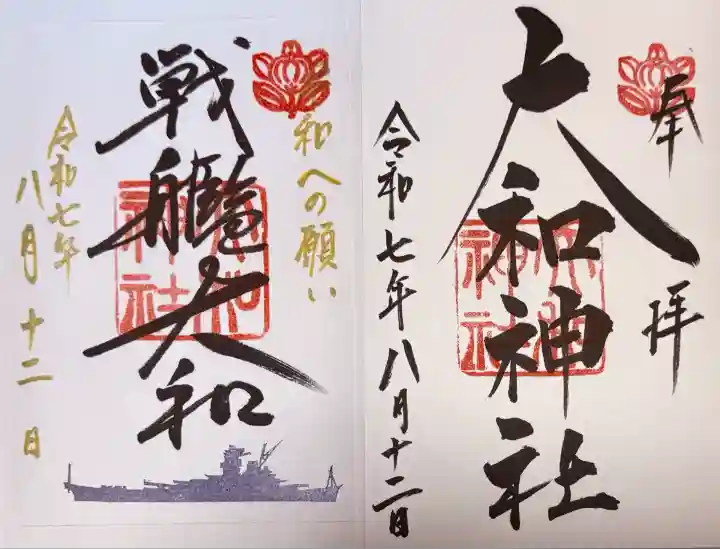 奉拝
大和神社
令和七年八月十二日
和への願い
戦艦大和
令和七年
八月十二日
大和神社
大和神社